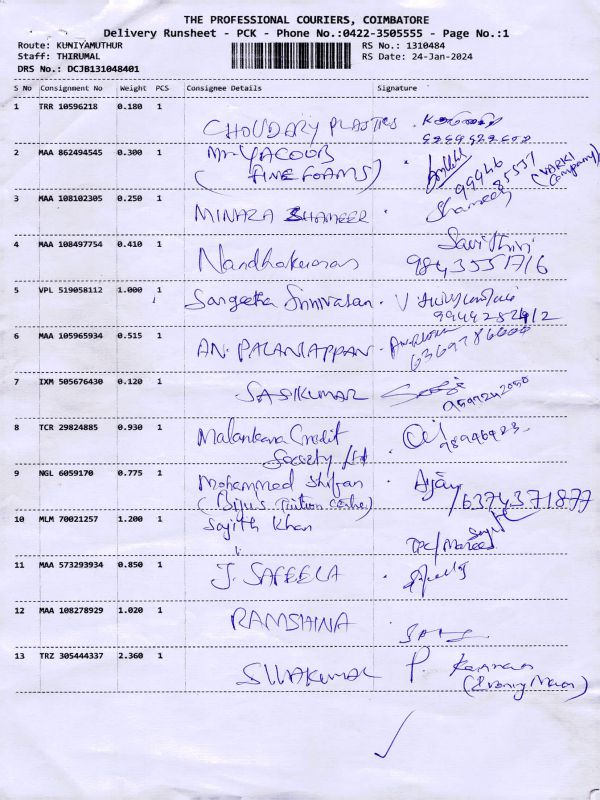 THE PROFESSIONAL COURIERS, COIMBATORE
Delivery Runsheet - PCK - Phone No.:0422-3505555 - Page No.:1
Route: KUNIYAMUTHUR RS No.: 1310484
Staff: THIRUMAL RS Date: 24-Jan-2024
DRS No.: DCJB131048401
S No Consignment No Weight PCS Consignee Details Signature
1 TRR 10596218 0.180 1
CHOUDARY PLASTICS
2 MAA 862494545 0.300 1 Mr YACOOB
(FINE FOAMS) 99446 85537 (VARKI Company)
3 MAA 108102305 0.250 1 MINAZA SHAMEER Shameer
4 MAA 108497754 0.410 1 Nandhakumar Savithiri
9843551716
5 VPL 519058112 1.000 1 Sangeetha Srinivasan
6 MAA 105965934 0.515 1 AN. PALANIAPPAN
6369786000
7 IXM 505676430 0.120 1 SASIKUMAR
8 TCR 29824885 0.930 1 Malankara Credit
Society Ltd
9 NGL 6059170 0.775 1 Mohammed Shifan Ajay
(Biju's Tuition Centre) /6374371877
10 MLM 70021257 1.200 1 Sajith Khan
11 MAA 573293934 0.850 1 J. SAFEELA
12 MAA 108278929 1.020 1 RAMSHINA
13 TRZ 305444337 2.360 1 SIVAKUMAR P. Kannan